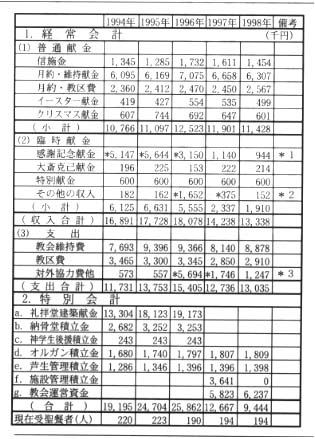 1994年 1995年 1996年 1997年 1998年 備考
1. 経常会計 (千円)
(1) 普通献金
信施金 1,345 1,285 1,732 1,611 1,454
月約・維持献金 6,095 6,169 7,075 6,658 6,307
月約・教区費 2,360 2,412 2,470 2,450 2,567
イースター献金 419 427 554 535 499
クリスマス献金 607 744 692 647 601
(小計) 10,766 11,097 12,523 11,901 11,428
(2) 臨時献金
感謝記念献金 *5,147 *5,644 *3,150 1,140 944 *1
大斎克己献金 196 225 153 222 214
特別献金 600 600 600 600 600
その他の収入 182 162 *1,652 *375 152 *2
(小計) 6,125 6,631 5,555 2,337 1,910
(収入合計) 16,891 17,728 18,078 14,238 13,338
(3) 支出
教会維持費 7,693 9,396 9,366 8,140 8,878
教区費 3,465 3,300 3,345 2,850 2,910
対外協力費他 573 557 *5,694 *1,746 1,247 *3
(支出合計) 11,731 13,753 15,405 12,736 13,035
2. 特別会計
a. 礼拝堂建築献金 13,304 18,123 19,173
b. 納骨堂積立金 2,682 3,252 3,253
c. 神学生後援積立金 243 243 243
d. オルガン積立金 1,680 1,740 1,797 1,807 1,809
e. 芦生管理積立金 1,286 1,346 1,396 1,396 1,398
f. 施設管理積立金 3,641 0
g. 教会運営資金 5,823 6,237
(合計) 19,195 24,704 25,862 12,667 9,444
現在受聖餐者(人) 220 223 190 194 194